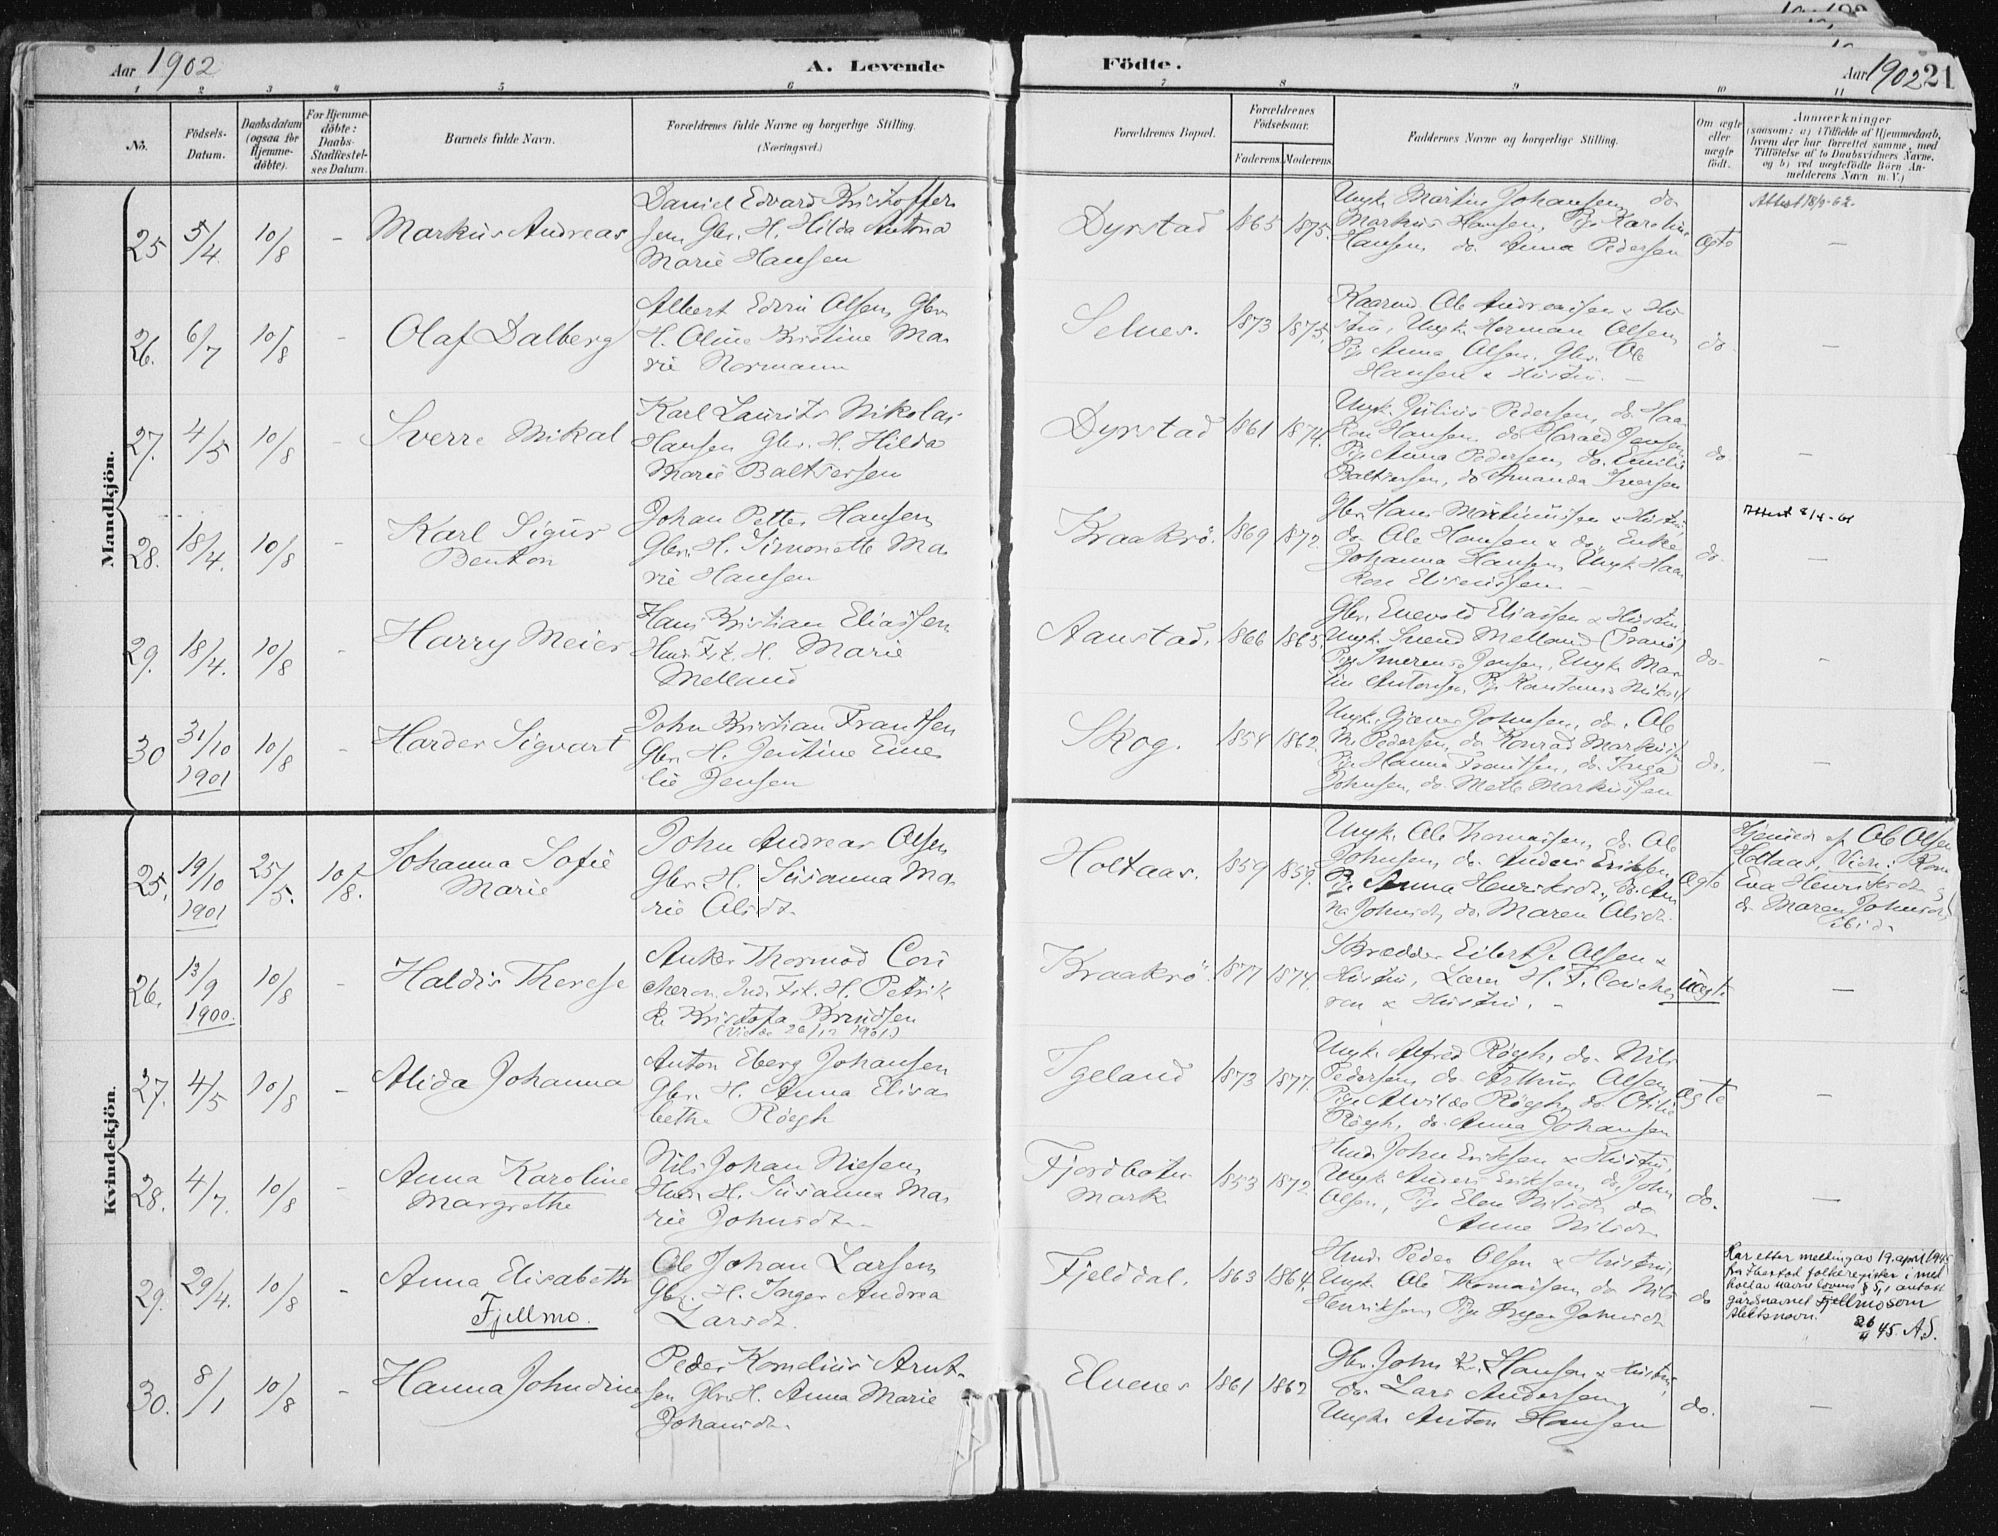 Aar 1902
A. Levende
Födte.
Aar 1902 21
1 2 3 4 5 6 7 8 9 10 11
No.
Födsels-
Datum.
Daabsdatum
(ogsaa for
Hjemme-
döbte).
For Hjemme-
döbte:
Daabs-
Stadfæstel-
ses Datum.
Barnets fulde Navn.
Forældrenes fulde Navne og borgerlige Stilling.
(Næringsvei.)
Forældrenes Bopæl.
Forældrenes
Födselsaar.
Faderens. Moderens.
Faddernes Navne og borgerlige Stilling.
Om ægte
eller
uægte
født.
Anmærkninger
(saasom: a) i Tilfælde af Hjemmedaab,
hvem der har forrettet samme, med
Tilföielse af to Daabsvidners Navne,
og b) ved uægtefödte Börn An-
melderens Navn m. V.)
Mandkjön.
25 5/4 10/8 -
Markus Andreas
Daniel Edvard Kristoffer
sen Gbr. H. Hilda Antona
Marie Hansen
Dyrstad 1865 1875.
Ungk. Martin Johansen, do
Markus Hansen, Pige Karoline
Hansen, do. Anna Pedersen
Ægte
-
26. 6/7 10/8 -
Olaf Dalberg
Albert Edvin Olsen, Gbr.
H. Oline Kristine Ma
rie Normann
Selnes. 1873 1875.
Kaarmd. Ole Andreassen & Hu
stru, Ungk. Herman Olsen,
Pige Anna Olsen, Gbr. Ole
Hansen & Hustru. -
do.
-
27. 4/5 10/8 -
Sverre Mikal
Karl Laurits Nikolai
Hansen Gbr. H. Hilda
Marie Baltsersen
Dyrstad 1861 1874.
Ungk. Julius Pedersen, do. Haa
kon Hansen, do Harald Jensen,
Pige Anna Pedersen, do. Emilie
Baltsersen, do Amanda Iversen
do.
-
28. 18/4. 10/8 -
Karl Sigur
Benton
Johan Petter Hansen,
Gbr. H. Simonette Ma
rie Hansen
Kraakrö. 1869 1872.
Gbr. Hans Martinussen & Hustru,
do Ole Hansen & do, Enke
Johanna Hansen, Ungk. Haa
kon Eliseussen -
do.
Attest 8/4-61
29. 18/4. 10/8 -
Harry Meier
Hans Kristian Eliassen
H. Marie
Melland
Aanstad. 1866 1865.
Gbr. Enevold Eliassen & Hustru,
Ungk. Svend Melland (Tranö)
Pige Imerense Jensen, Ungk. Mar
tin Antonsen, Pige
do.
-
30 31/10 10/8 -
1901
Harder Sigvart
John Kristian Frantsen
Gbr. H. Jentine Eme
lie Jensen
Skog. 1854 1862.
Ungk. Johnsen, do. Ole
M. Pedersen, do Konrad Markussen
Pige Hanna Frantsen, do. Inga
Johnsen, do. Mette Markussen
do.
-
Kvindekjön.
25. 19/10 25/5. 10/8.
1901
Johanna Sofie
Marie
John Andreas Olsen,
Gbr. H. Susanna Ma
rie Olsdt.
Holtaas. 1859 1859.
Ungk. Ole Thomassen, do. Ole
Johnsen, do. Anders Eriksen,
Pige Anna Henriksdt., do. An
na Johnsdt., do. Maren Olsdt.
Ægte
Hjemmed. af Ole Olsen
Holtaas, Vidn: Kone
Eva Henriksdt. &
do. Maren Johnsdt.
ibid.
26. 13/9 10/8
1900.
Haldis Therese
Anker Thormod Cou
cheron, Ind. Fsk. H. Petrik
ke Kristofa Berntsen
(Viede 26/12 1901)
Kraakrö 1877 1874.
Skrædder Eilert J. Olsen &
Hustru, Lærer H. F. Couche
ron & Hustru. -
uægte
-
27. 4/5 10/8 -
Alida Johanna
Anton Eberg Johansen
Gbr. H. Anna Elisa
beth Røkgh
Igeland 1873 1877.
Ungk. Alfred Røegh, do. Nils
Pedersen, do. Arthur Olsen,
Pige Alvilde Røegh, do. Otilie
Røegh, do. Anna Johansen
Ægte
-
28. 4/7. 10/8 -
Anna Karoline
Margrethe
Nils Johan Nilsen,
H. Susanna Ma
rie Johnsdt.
Fjordbotn
mark 1853 1872.
John Eriksen & Hustru,
Ungk. Anders Eriksen, do. John
Olsen, Pige Elen Nilsdt. do
Anne Nilsdt.
do.
-
29. 29/4. 10/8 -
Anna Elisabeth
Fjellmo.
Ole Johan Larsen,
Gbr. H. Inger Andrea
Larsdt.
Fjelddal. 1863 1864.
Peder Olsen & Hustru
Ungk. Ole Thomassen, do Nils
Henriksen, Pige Inger Johnsdt.
do
Har etter melding av 19. april 1945
fra Ibestad folkeregister i med
hold av navnelovens § 5, antatt
gårdnavnet Fjellmo som
slektsnavn.
45. A.S.
30. 8/1 10/8 -
Hanna Johndine
Peder Kornelius Arnt-
sen Gbr. H. Anna Marie
Johansdt.
Elvenes 1861 1862
Gbr. John Kr. Hansen & Hustru,
do. Lars Andersen,
Ungk. Anton Hansen
do.
-